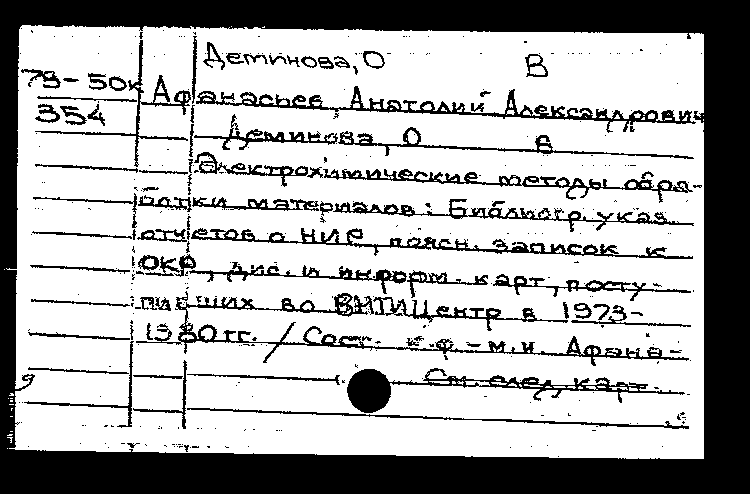 Деминова, О В
79-50к Афанасьев, Анатолий Александрович
354 Деминова, О В
Электрохимические методы обра-
ботки материалов: Библиогр. указ.
отчетов о НИР, поясн. записок к
ОКР, дис. и информ. карт, посту-
пивших во ВНТИЦентр в 1973-
1980 гг. / Сост. к.ф-м.н. Афана-
См. след. карт.